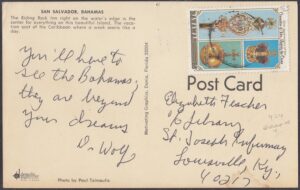 SAN SALVADOR, BAHAMAS
The Riding Rock Inn right on the water's edge is the
center for everything on this beautiful island. The vaca-
tion spot of the Caribbean where a week seems like a
day.
You'll have to
see the Bahamas,
they are beyond
your dreams
Dr Wolf
Photo by Paul Tzimoulis
Dania, Florida 33004
Post Card
Elizabeth
Library
St. Joseph Infirmary
Louisville, Ky.
40217